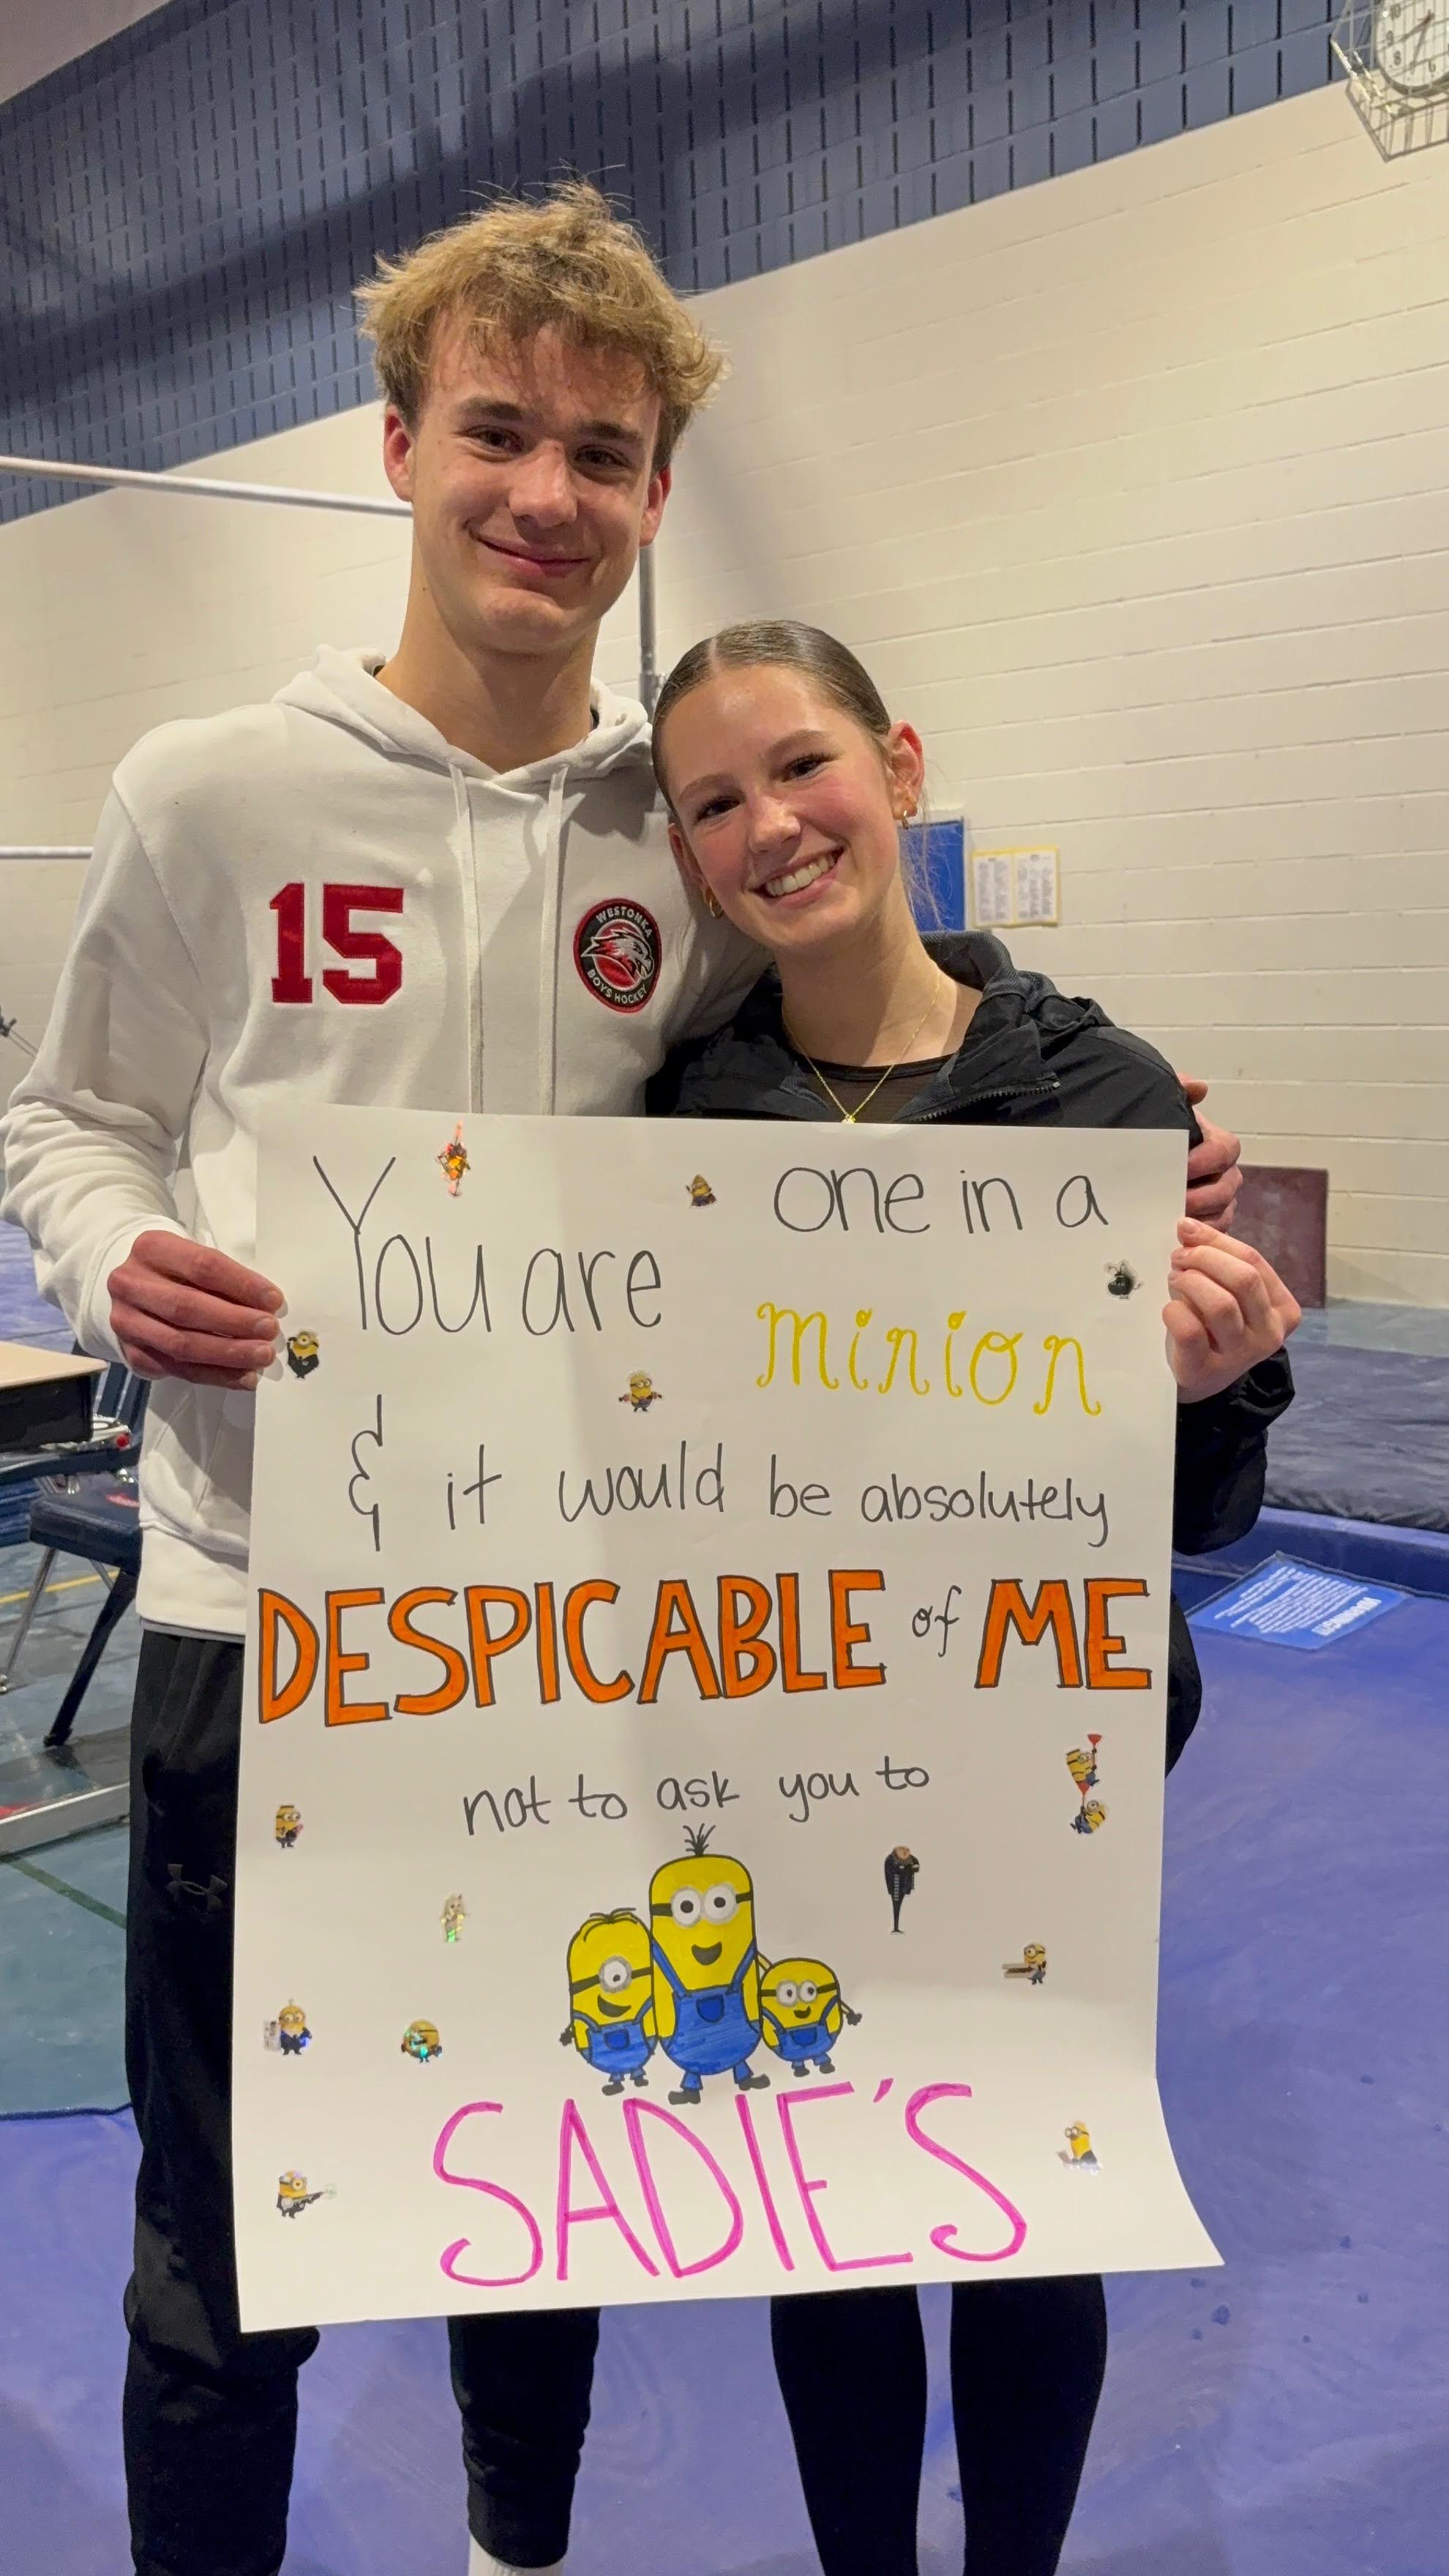 15
WESTONKA
BOYS HOCKEY
You are
one in a
minion
& it would be absolutely
DESPICABLE of ME
not to ask you to
SADIE'S
WARNING!!!